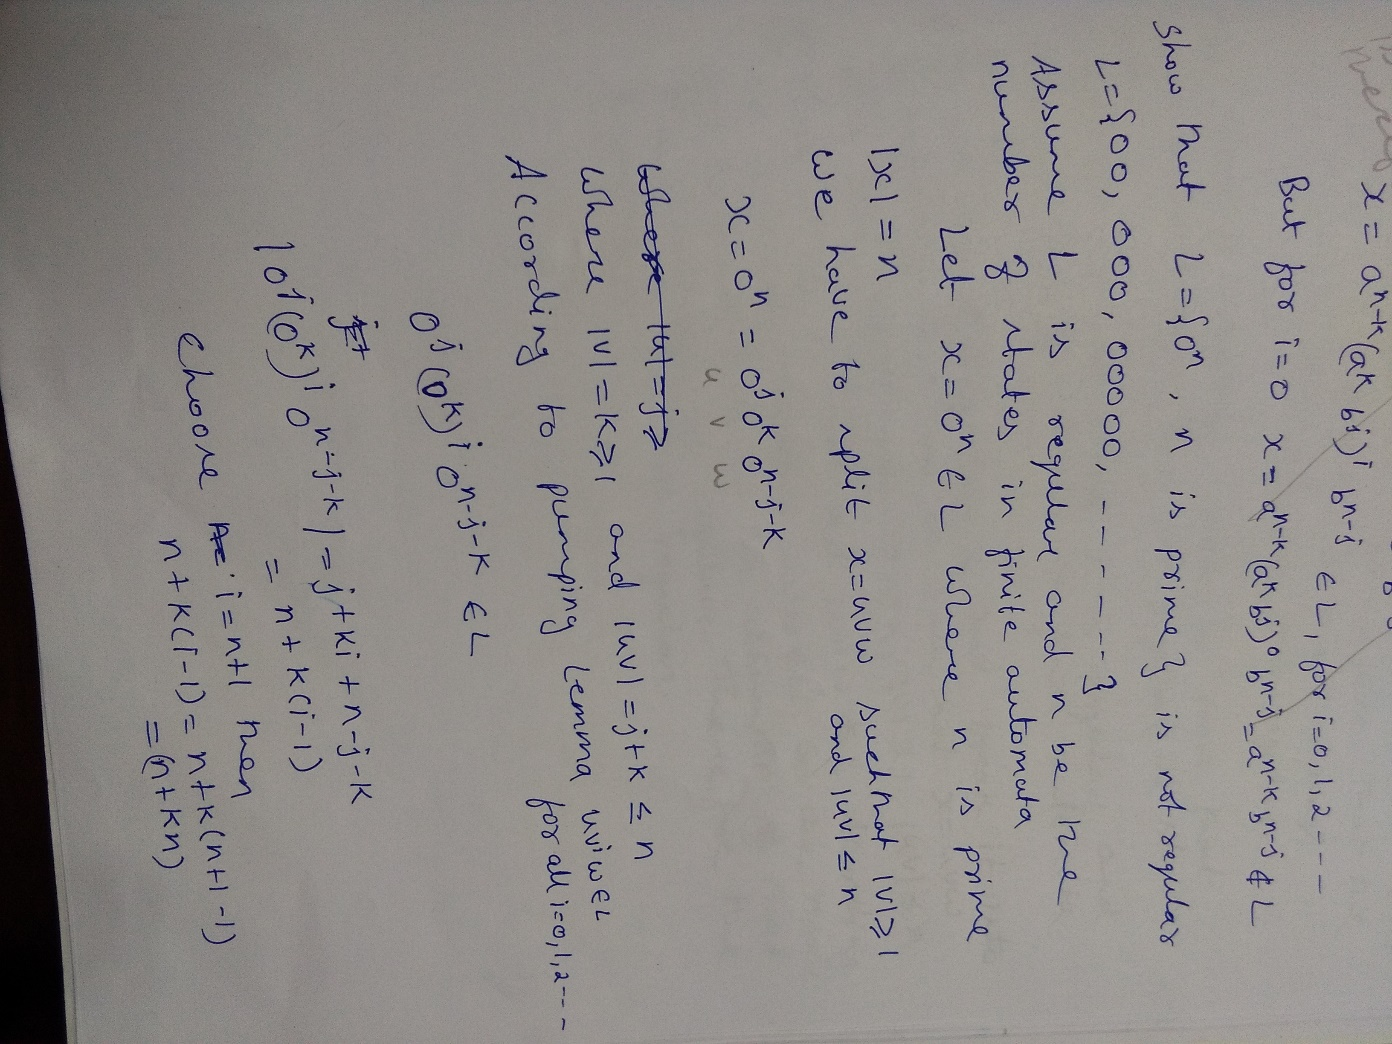 x = a^n-k (a^k b^j)^i b^n-j ∈ L, for i=0,1,2---
But for i=0 x = a^n-k (a^k b^j)^0 b^n-j = a^n-k b^n-j ∉ L
Show that L={0^n, n is prime} is not regular
L={00, 000, 00000, ------}
Assume L is regular and n be the
number of states in finite automata
Let x = 0^n ∈ L where n is prime
|x| = n
We have to split x=uvw such that |v|≥1
and |uv| ≤ n
x = 0^n = 0^j 0^k 0^n-j-k
u v w
Where |u|=j≥
Where |v|=k≥1 and |uv|=j+k ≤ n
According to pumping Lemma uv^iw∈L
for all i=0,1,2---
0^j (0^k)^i 0^n-j-k ∈ L
|0^j (0^k)^i 0^n-j-k| = j+ki+n-j-k
= n+k(i-1)
choose i=n+1 then
n+k(i-1) = n+k(n+1-1)
= (n+kn)